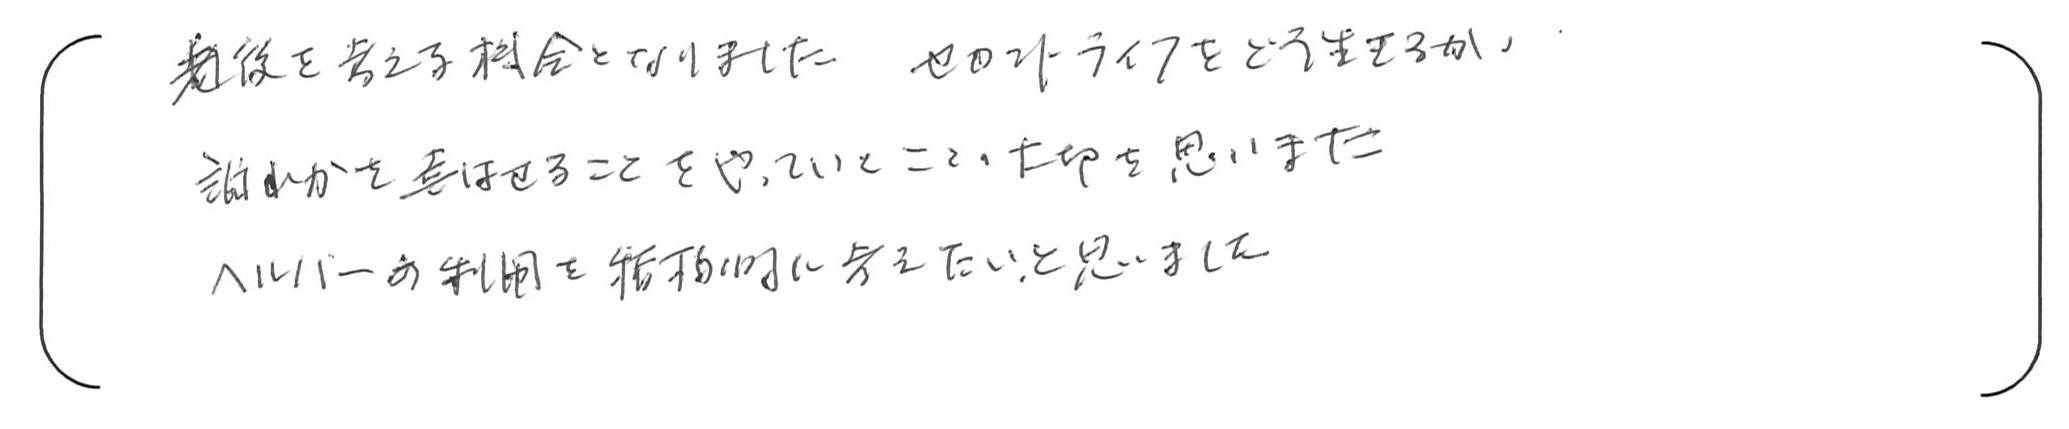 老後を考える機会となりました セカンドライフをどう生きるか、
誰れかを喜ばせることをやっていくこと、大切を思いました
ヘルパーの利用を積極的に考えたいと思いました